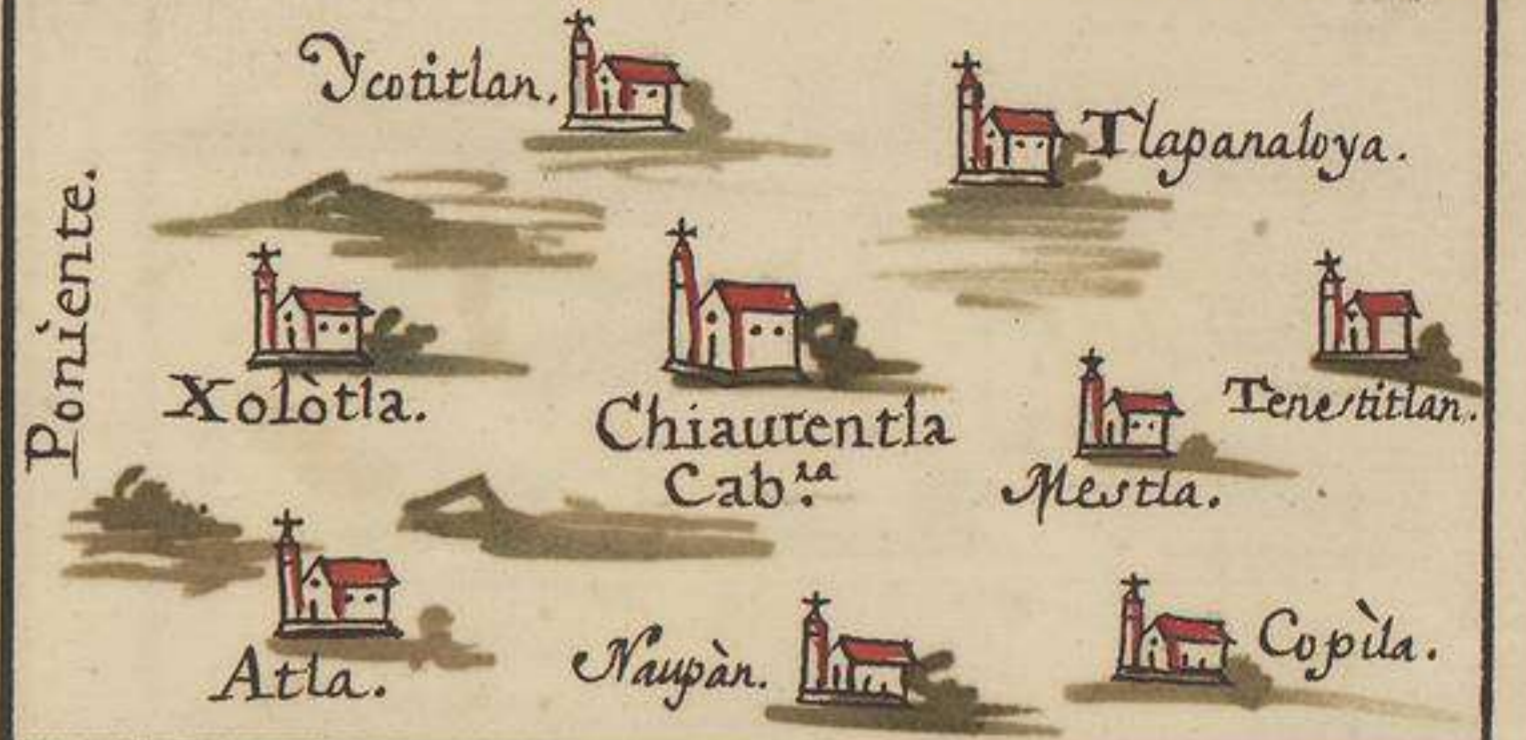 Ycotitlan.
Tlapanaloya.
Poniente.
Xolòtla.
Chiautentla
Cab.ra
Tenestitlan.
Mestla.
Atla.
Naupàn.
Copìla.